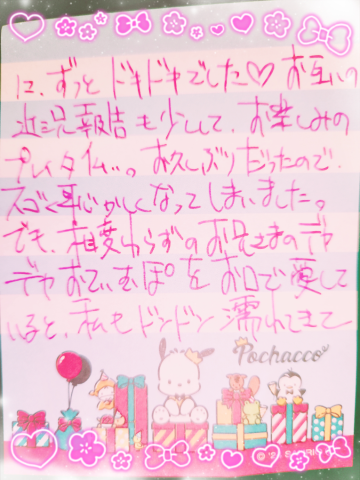 に、ずっとドキドキでした♡お互いの
近況報告も少しして、お楽しみの
プレイタイム…。お久しぶりだったので、
スゴく恥かしくなってしまいました。
でも、相変わらずのお兄さまのデャ
デャおてぃむぽ°をお口で愛して
いると、私もドンドン濡れてきて
Pochacco